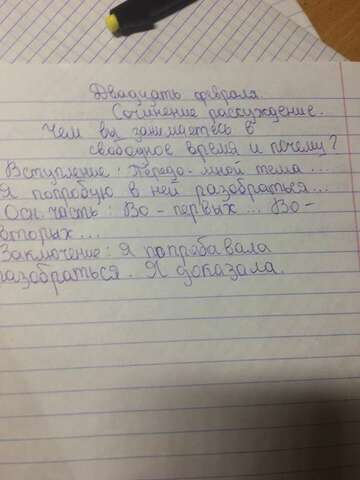 Двадцать февраля.
Сочинение рассуждение.
Чем вы занимаетесь в
свободное время и почему?
Вступление: Передо- мной тема...
Я попробую в ней разобраться...
Осн. часть: Во - первых ... Во -
вторых...
Заключение: Я попребавала
разобраться. Я доказала.